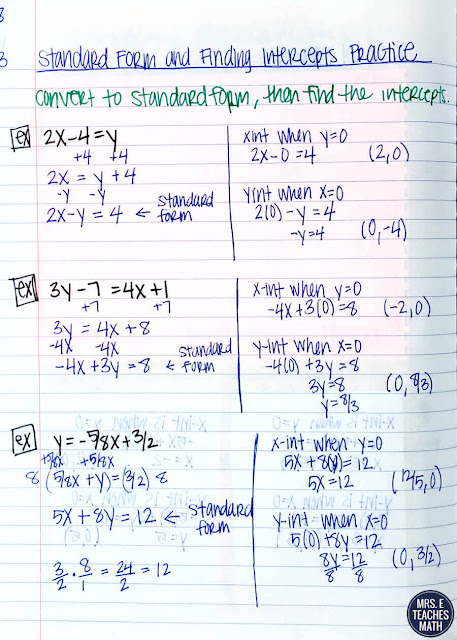 8
3
Standard Form and Finding Intercepts Practice
Convert to standard form, then find the intercepts.
ex 2x-4=y
+4 +4
2x = y+4
-y -y
2x-y = 4 ← standard form
x int when y=0
2x-0=4 (2,0)
y int when x=0
2(0)-y=4
-y=4 (0,-4)
ex 3y-7=4x+1
+7 +7
3y = 4x+8
-4x -4x
-4x+3y=8 ← standard form
x-int when y=0
-4x+3(0)=8 (-2,0)
y-int when x=0
-4(0)+3y=8
3y=8 (0,8/3)
y=8/3
ex y=-5/8x+3/2
+5/8x +5/8x
8(5/8x+y)=(3/2)8
5x+8y=12 ← standard form
3/2 · 8/1 = 24/2 = 12
x-int when y=0
5x+8(0)=12
5x=12 (12/5,0)
y-int when x=0
5(0)+8y=12
8y=12 (0,3/2)
8 8
MRS. E
TEACHES
MATH